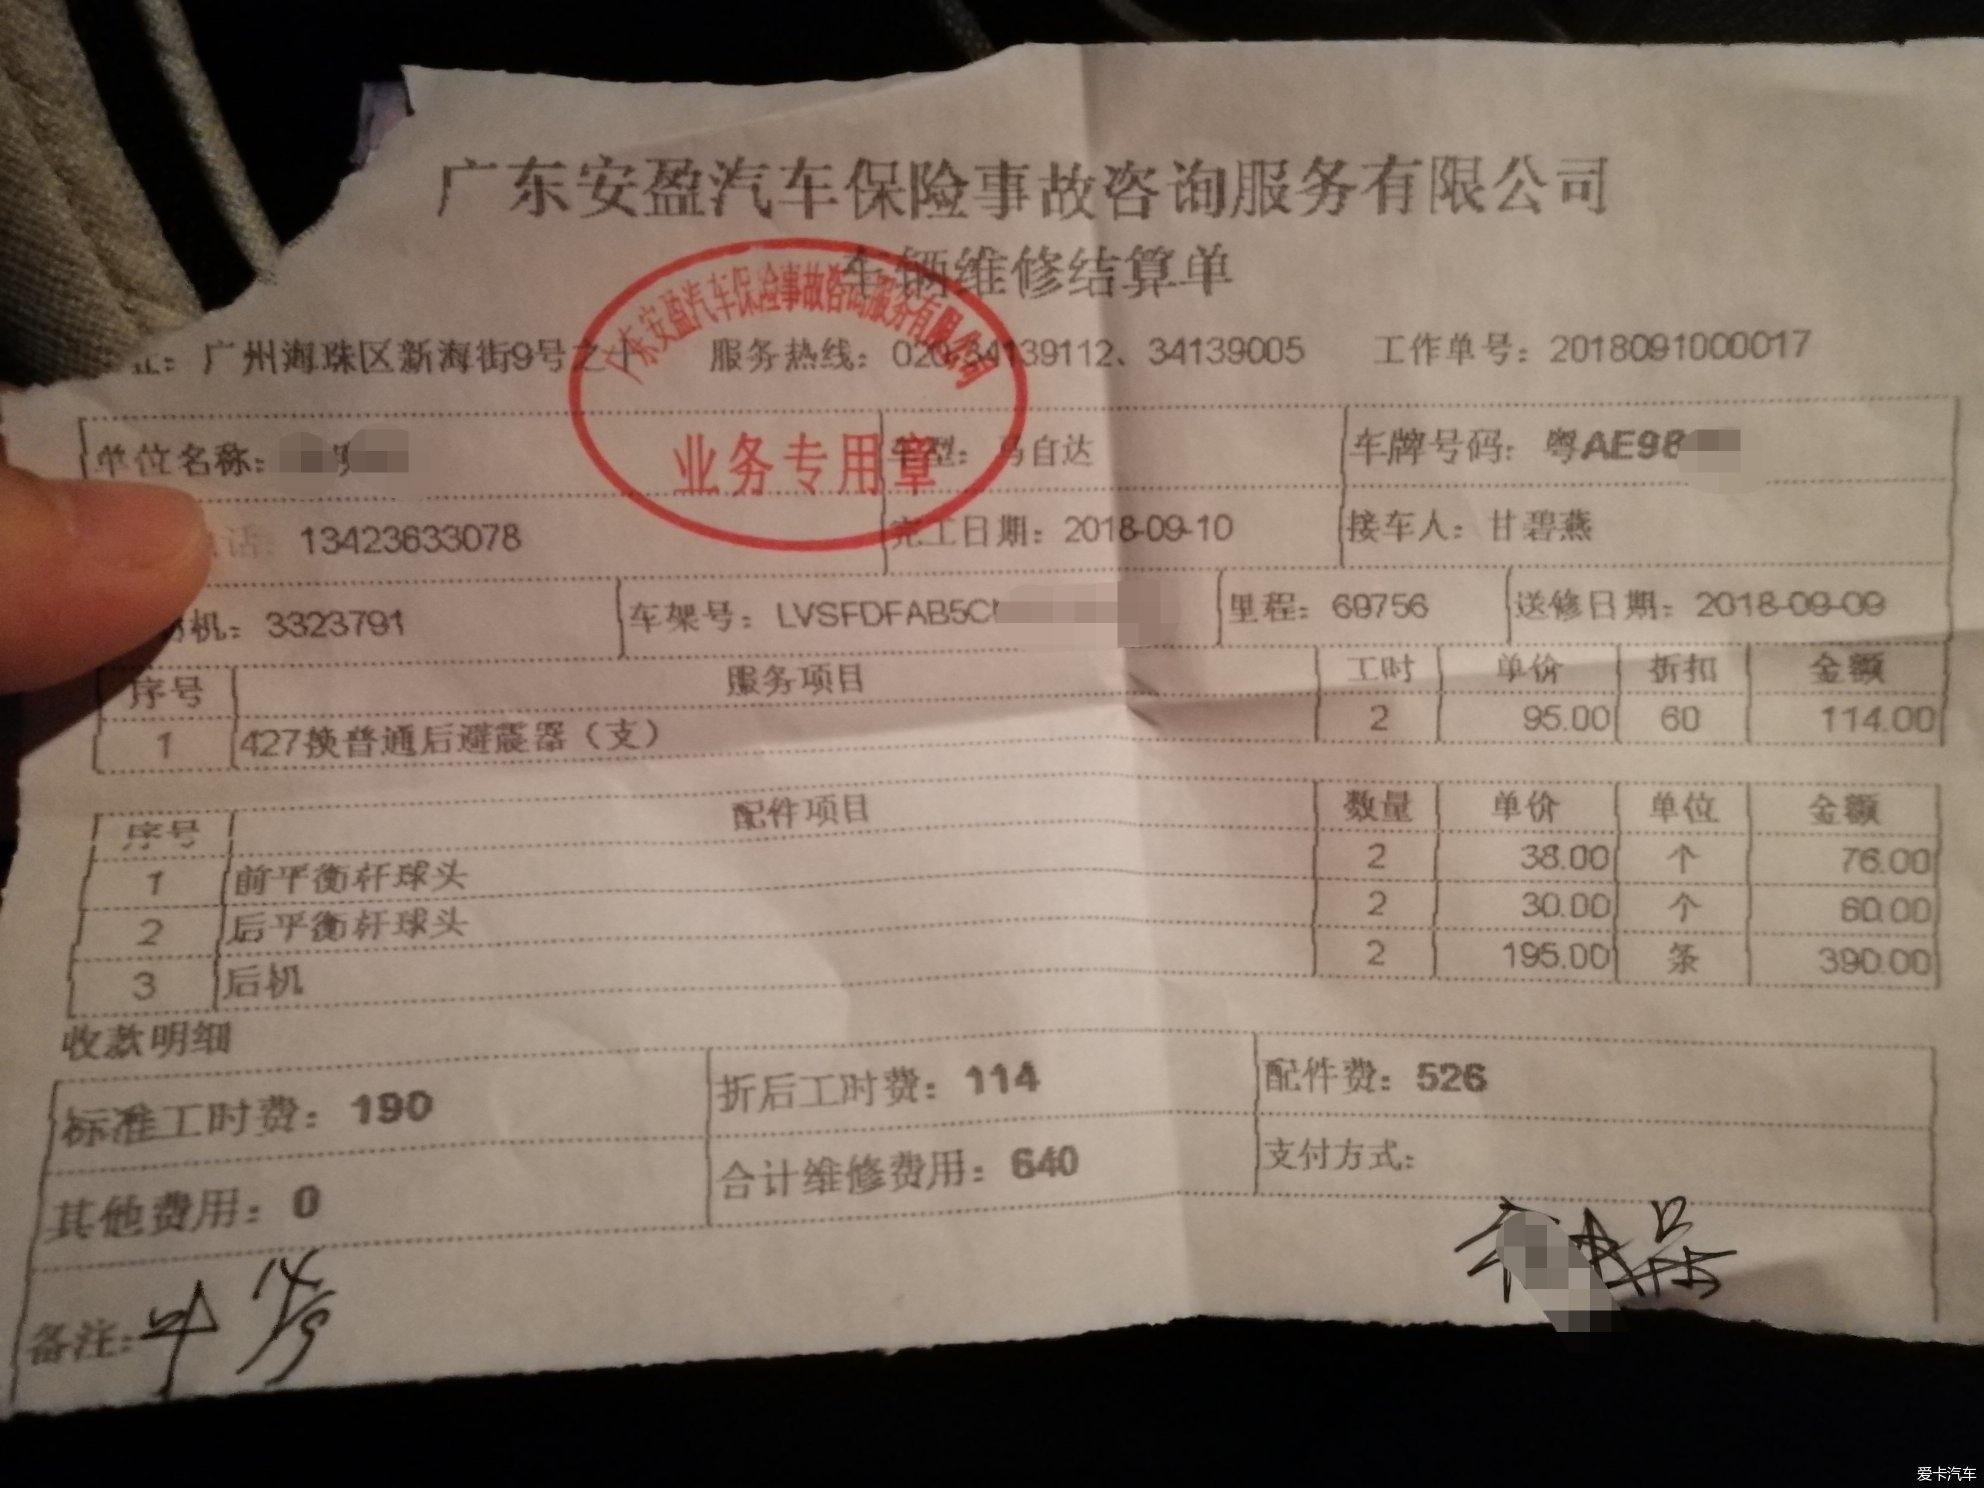 广东安盈汽车保险事故咨询服务有限公司
车辆维修结算单
址：广州海珠区新海街9号之十 服务热线：020-34139112、34139005 工作单号：2018091000017
广东安盈汽车保险事故咨询服务有限公司
业务专用章
单位名称： 车型：马自达 车牌号码：粤AE98
话：13423633078 完工日期：2018-09-10 接车人：甘碧燕
机：3323791 车架号：LVSFDFAB5C 里程：69756 送修日期：2018-09-09
序号 服务项目 工时 单价 折扣 金额
1 427换普通后避震器（支） 2 95.00 60 114.00
序号 配件项目 数量 单价 单位 金额
1 前平衡杆球头 2 38.00 个 76.00
2 后平衡杆球头 2 30.00 个 60.00
3 后机 2 195.00 条 390.00
收款明细
标准工时费：190 折后工时费：114 配件费：526
其他费用：0 合计维修费用：640 支付方式：
备注： 14/9
爱卡汽车